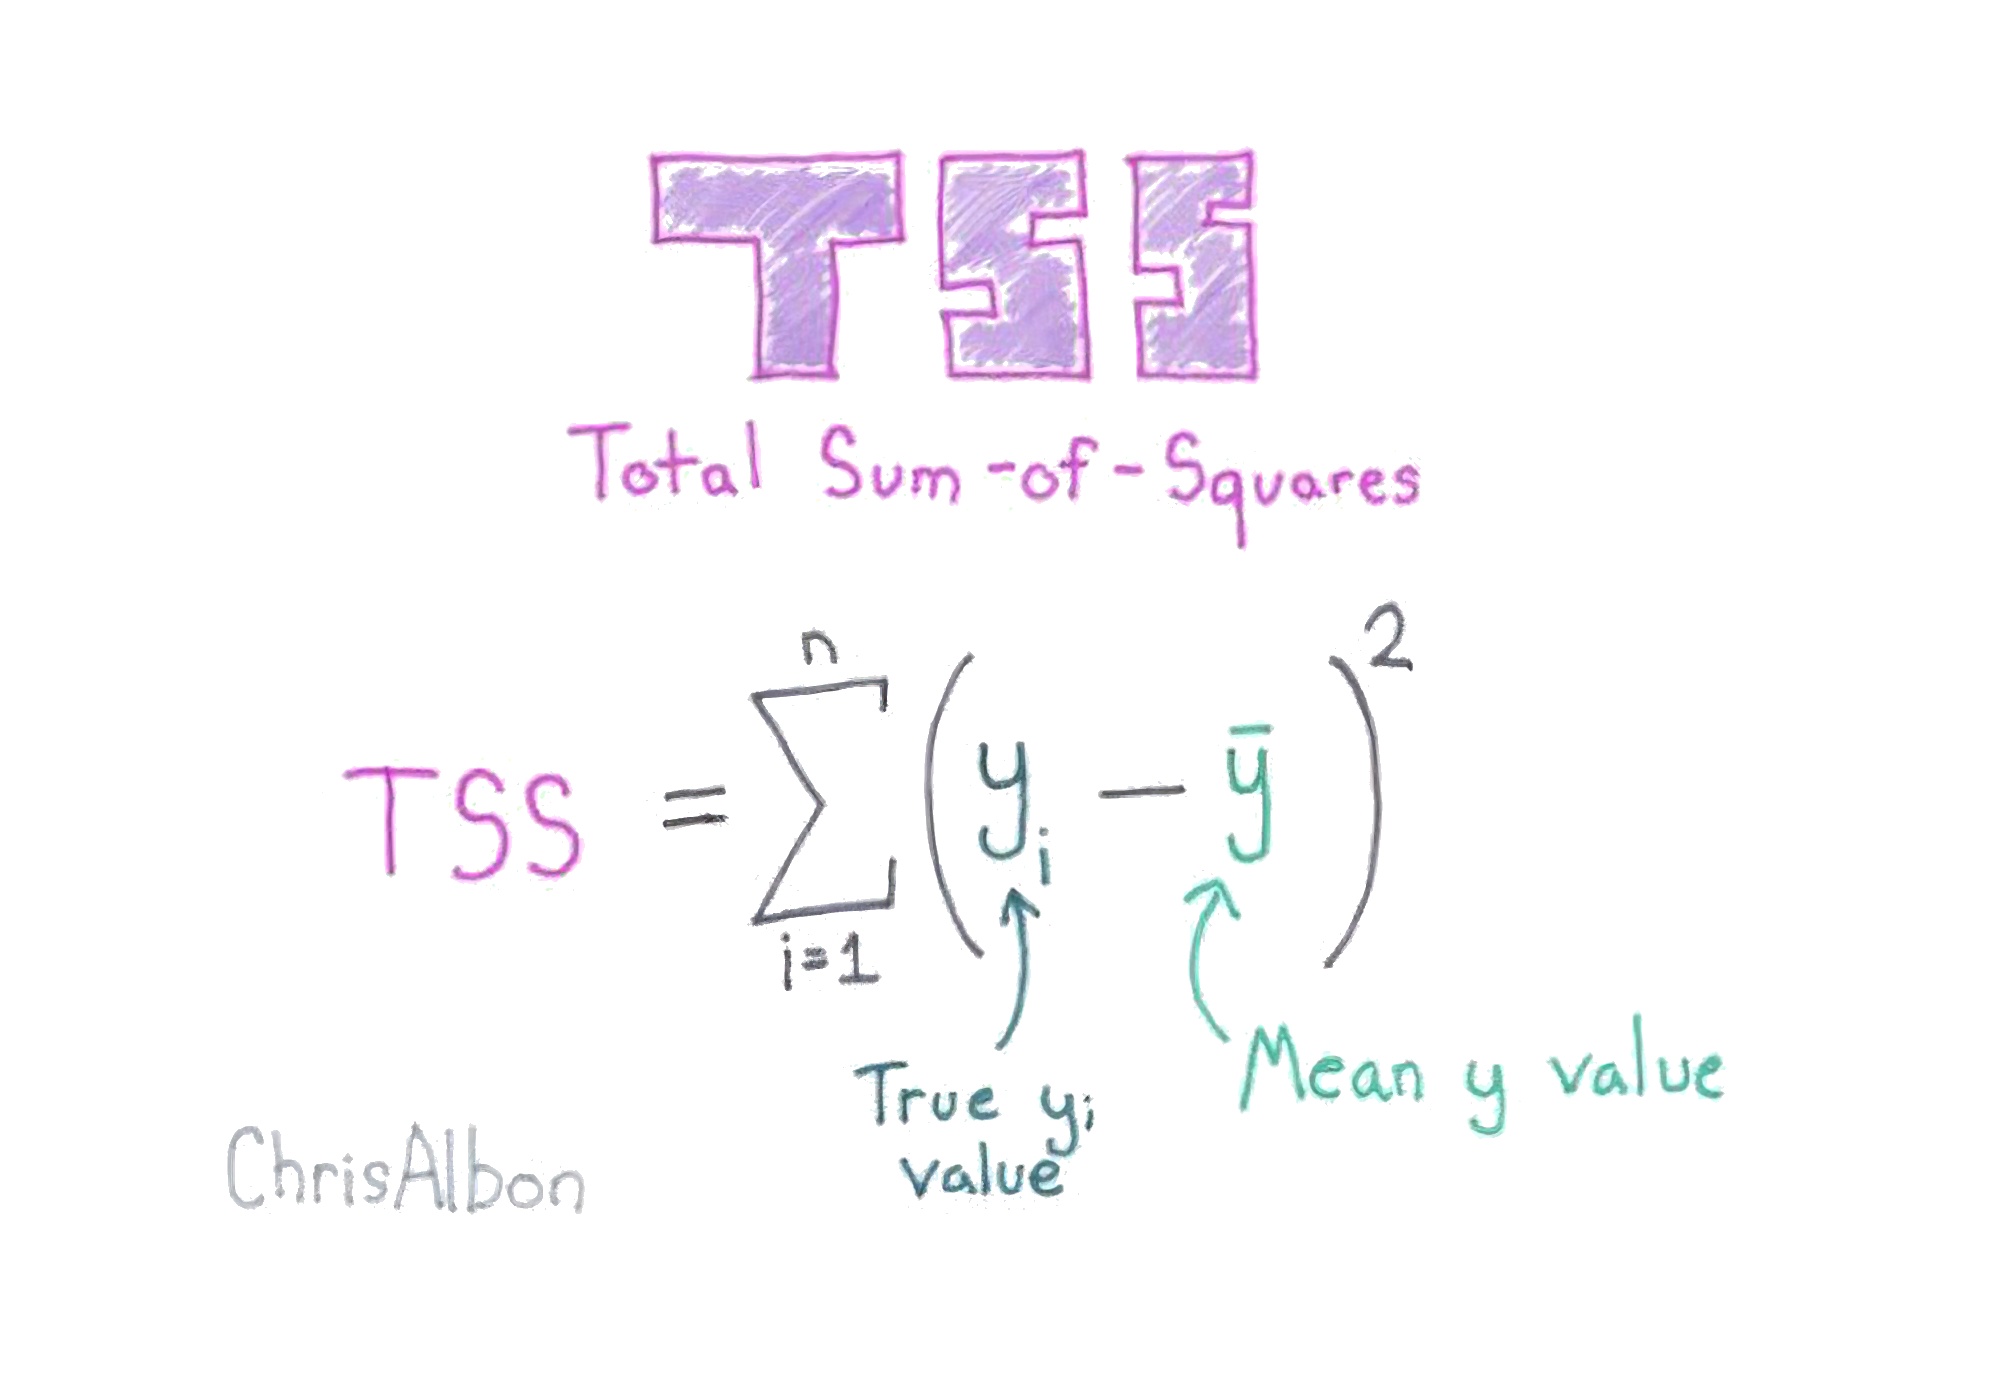 TSS
Total Sum-of-Squares
n
TSS = ∑ (yᵢ − ȳ)²
i=1
True yᵢ
value
Mean y value
ChrisAlbon